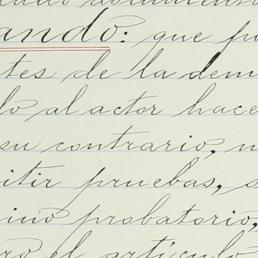 ando: que pu
tes de la dem
lo al actor hace
su contrario, n
itir pruebas, s
ino probatorio,
ro el artículo